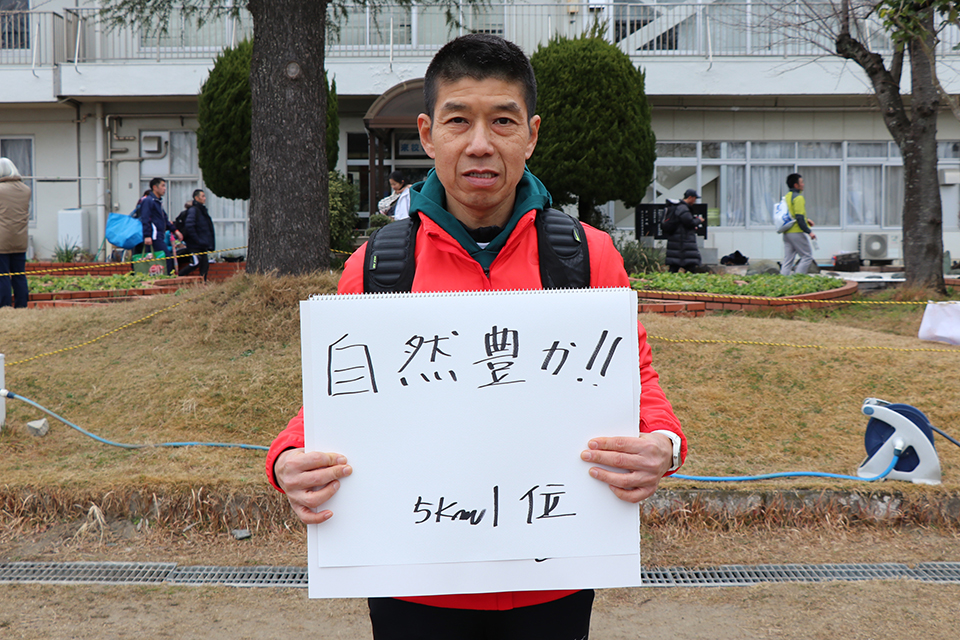 自然豊か!!
5Km 1位